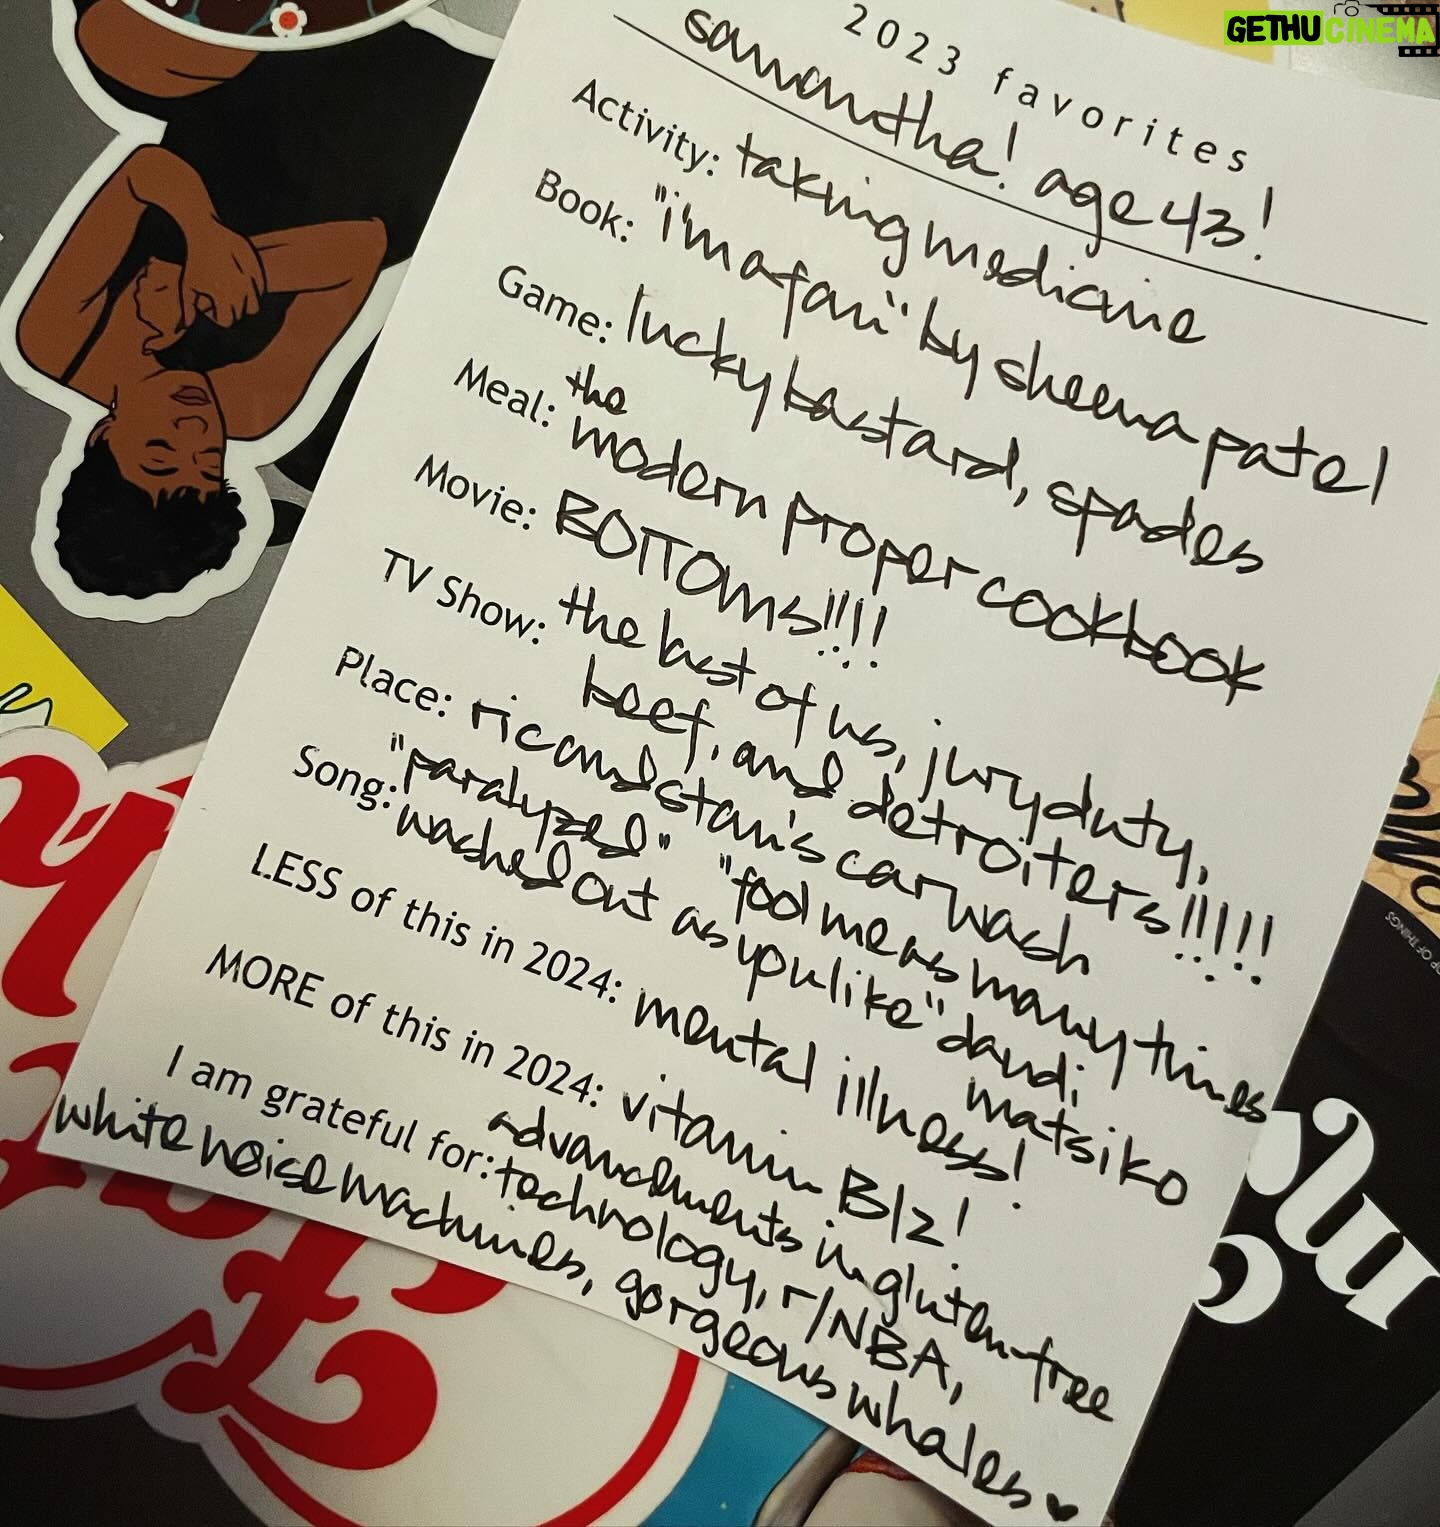 GETHU CINEMA
2023 favorites
samantha! age 43!
Activity: taking medicine
Book: "i'm a fan" by sheena patel
Game: lucky bastard, spades
Meal: the modern proper cookbook
Movie: BOTTOMS!!!!
TV Show: the last of us, jury duty,
beef, and detroiters!!!!!
Place: ric and stan's carwash
Song: "paralyzed" "fool me as many times
washed out as you like" daudi
matsiko
LESS of this in 2024: mental illness!
MORE of this in 2024: vitamin B12!
I am grateful for: advancements in gluten-free
technology, r/NBA,
white noise machines, gorgeous whales ♥
OF THINGS